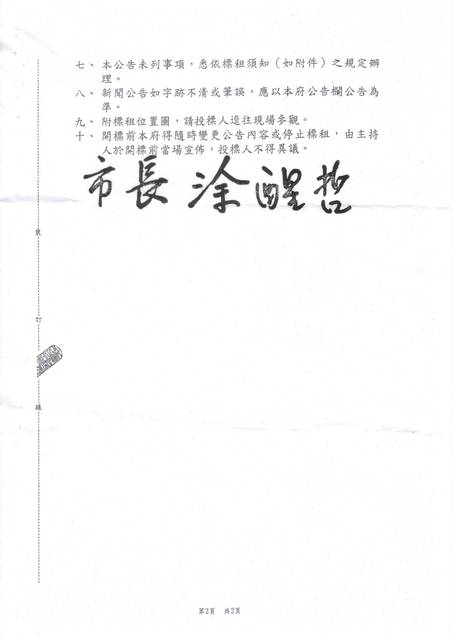 七、本公告未列事項，悉依標租須知（如附件）之規定辦
理。
八、新聞公告如字跡不清或筆誤，應以本府公告欄公告為
準。
九、附標租位置圖，請投標人逕往現場參觀。
十、開標前本府得隨時變更公告內容或停止標租，由主持
人於開標前當場宣佈，投標人不得異議。
市長 涂醒哲
裝
訂
線
第2頁 共2頁